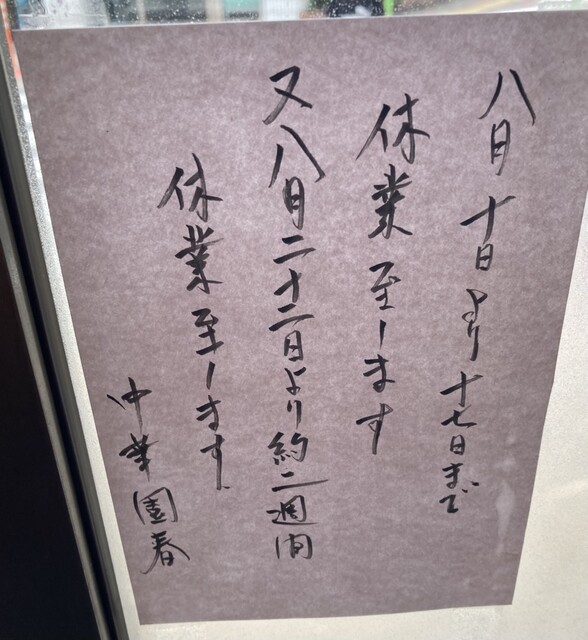 八月十日より十七日まで
休業至します
又八月二十二日より約二週間
休業至します
中華園春